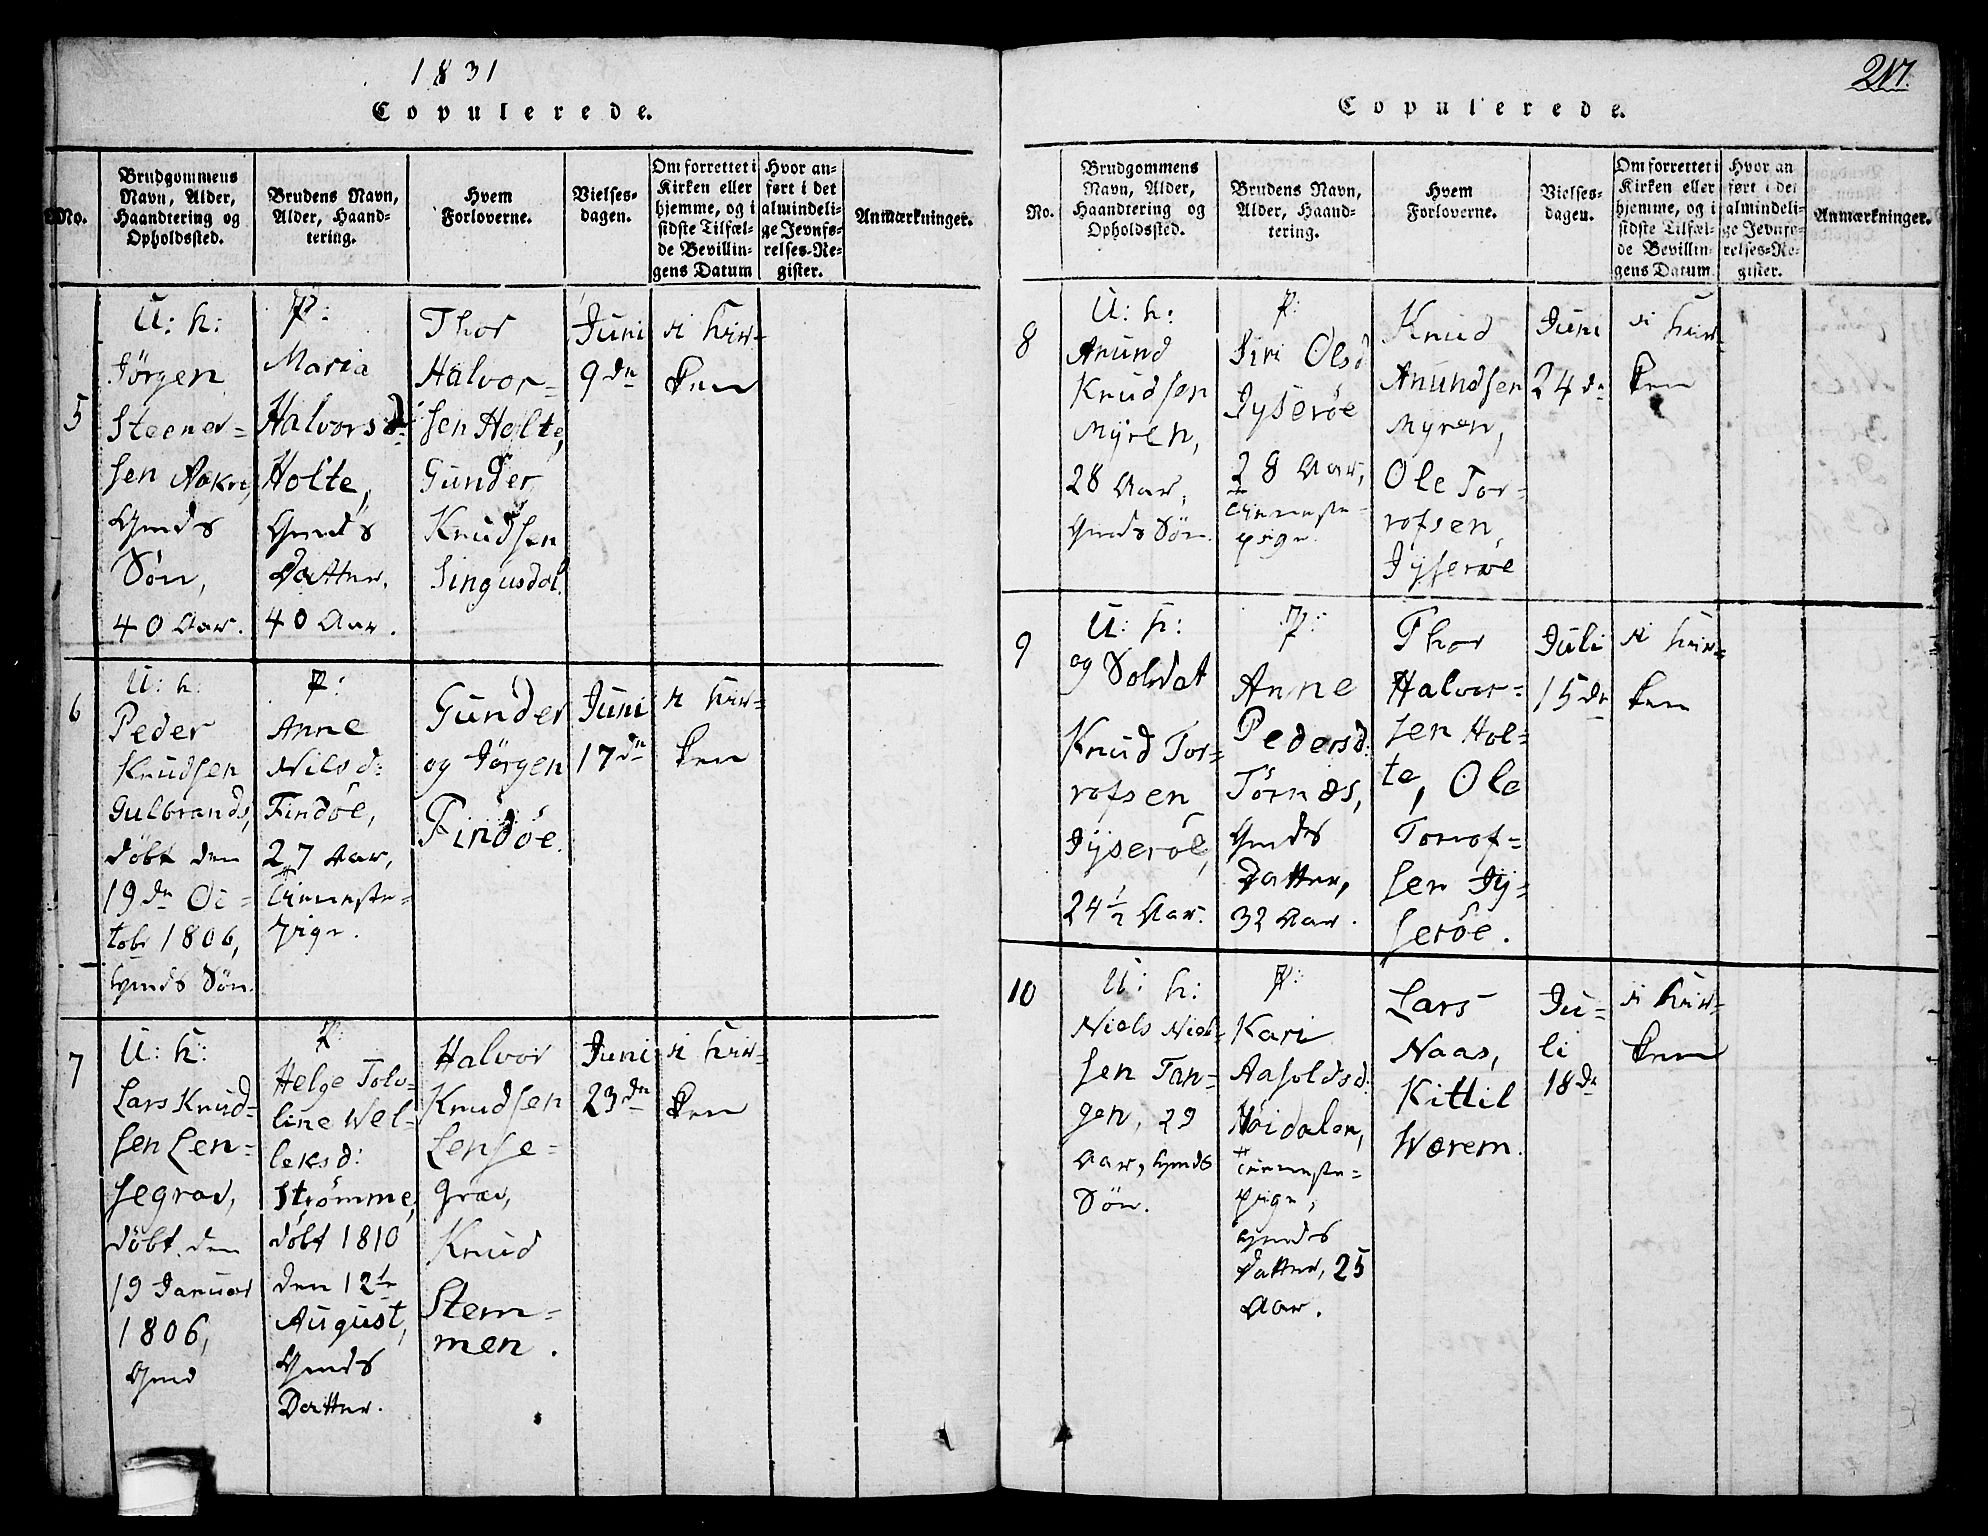 1831
Copulerede.
No.
Brudgommens
Navn, Alder,
Haandtering og
Opholdssted.
Brudens Navn,
Alder, Haand-
tering.
Hvem
Forloverne.
Vielses-
dagen.
Om forrettet i
Kirken eller
hjemme, og i
sidste Tilfæl-
de Bevillin-
gens Datum
Hvor an-
ført i det
almindeli-
ge Jevnfø-
relses-Re-
gister.
Anmærkninger.
5
U: k:
Jörgen
Steener-
sen Aakre,
Gmds
Søn,
40 Aar.
P:
Maria
Halvorsd:
Holte,
Gmds
Datter.
40 Aar.
Thor
Halvor-
sen Holte,
Gunder
Knudsen
Singusdal.
Juni
9de
i Kir-
ken
6
U: k:
Peder
Knudsen
Gulbrands,
döbt den
19de Oc-
tobr 1806,
Gmds Søn.
P:
Anne
Nilsd:
Findöe,
27 Aar,
Tieneste-
pige.
Gunder
og Jörgen
Findöe.
Juni
17de
i Kir-
ken
7
U: k:
Lars Knud-
sen Len-
segrav,
döbt den
19 Januar
1806,
Gmd
P:
Helge Tolv-
line Wel-
leksd:
Strömme,
döbt 1810
den 12te
August,
Gmds
Datter.
Halvor
Knudsen
Lense-
grav,
Knud
Stem-
men.
Juni
23de
i Kir-
ken
217.
Copulerede.
No.
Brudgommens
Navn, Alder,
Haandtering og
Opholdssted.
Brudens Navn,
Alder, Haand-
tering.
Hvem
Forloverne.
Vielses-
dagen.
Om forrettet i
Kirken eller
hjemme, og i
sidste Tilfæl-
de Bevillin-
gens Datum
Hvor an
ført i det
almindeli-
ge Jevnfø-
relses-Re-
gister.
Anmærkninger.
8
U: k:
Anund
Knudsen
Myren,
28 Aar,
Gmds Søn.
P:
Siri Olsd
Jyseröe
28 Aar,
Tieneste-
pige.
Knud
Anundsen
Myren,
Ole Tor-
rofsen,
Jyseröe
Juni
24de
i Kir-
ken
9
U: k:
og Soldat
Knud Tor-
rofsen
Jyseröe,
24½ Aar.
P:
Anne
Pedersd:
Törnæs,
Gmds
Datter,
32 Aar.
Thor
Halvor-
sen Hol-
te, Ole
Torrof-
sen Jy-
seröe.
Juli
15de
i Kir-
ken
10
U: k:
Niels Niel-
sen Tan-
gen, 29
Aar, Gmds
Søn.
P:
Kari
Aasoldsd:
Höidalen,
Tieneste-
pige,
Gmds
Datter, 25
Aar.
Lars
Naas,
Kittil
Wærem.
Ju-
li
18de
i Kir-
ken